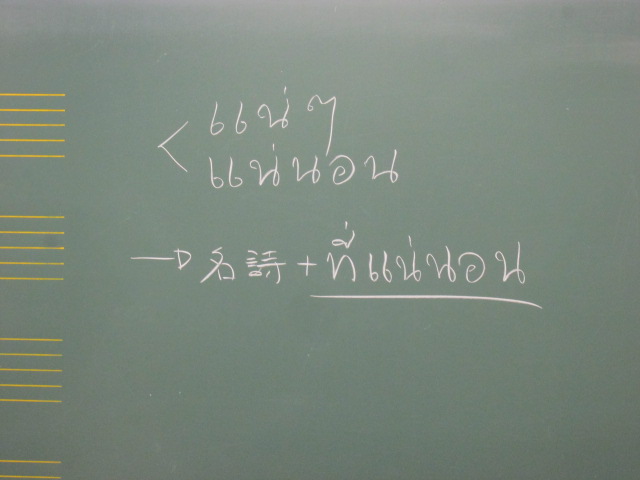 < แน่ๆ
แน่นอน
→ 名詩 + ที่แน่นอน